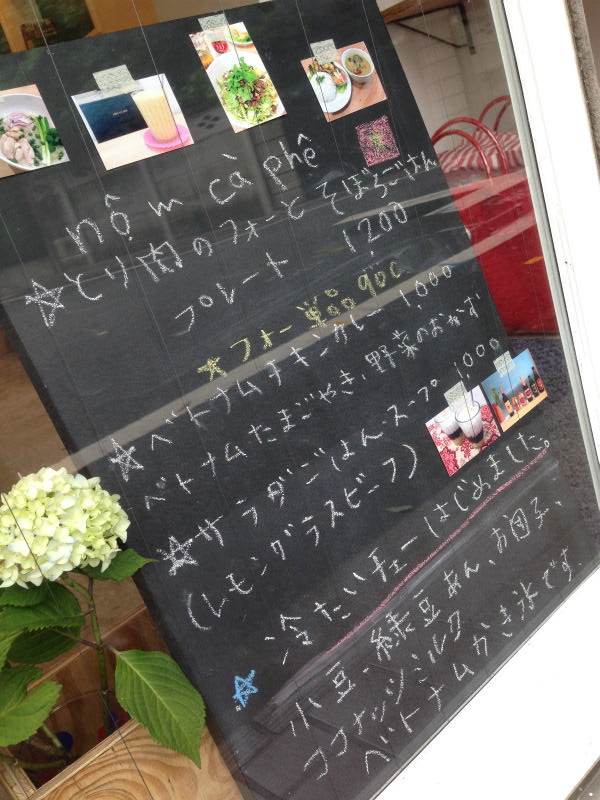 nộm cà phê
☆とり肉のフォーとそぼろごはん
プレート 1200
★フォー単品900
☆ベトナムチキンカレー 1,000
ベトナムたまごやき、野菜のおかず
☆サラダごはん・スープ 1000
(レモングラスビーフ)
冷たいチェーはじめました。
☆小豆、緑豆あん、お団子、
ココナッツミルク
ベトナムかき氷です。